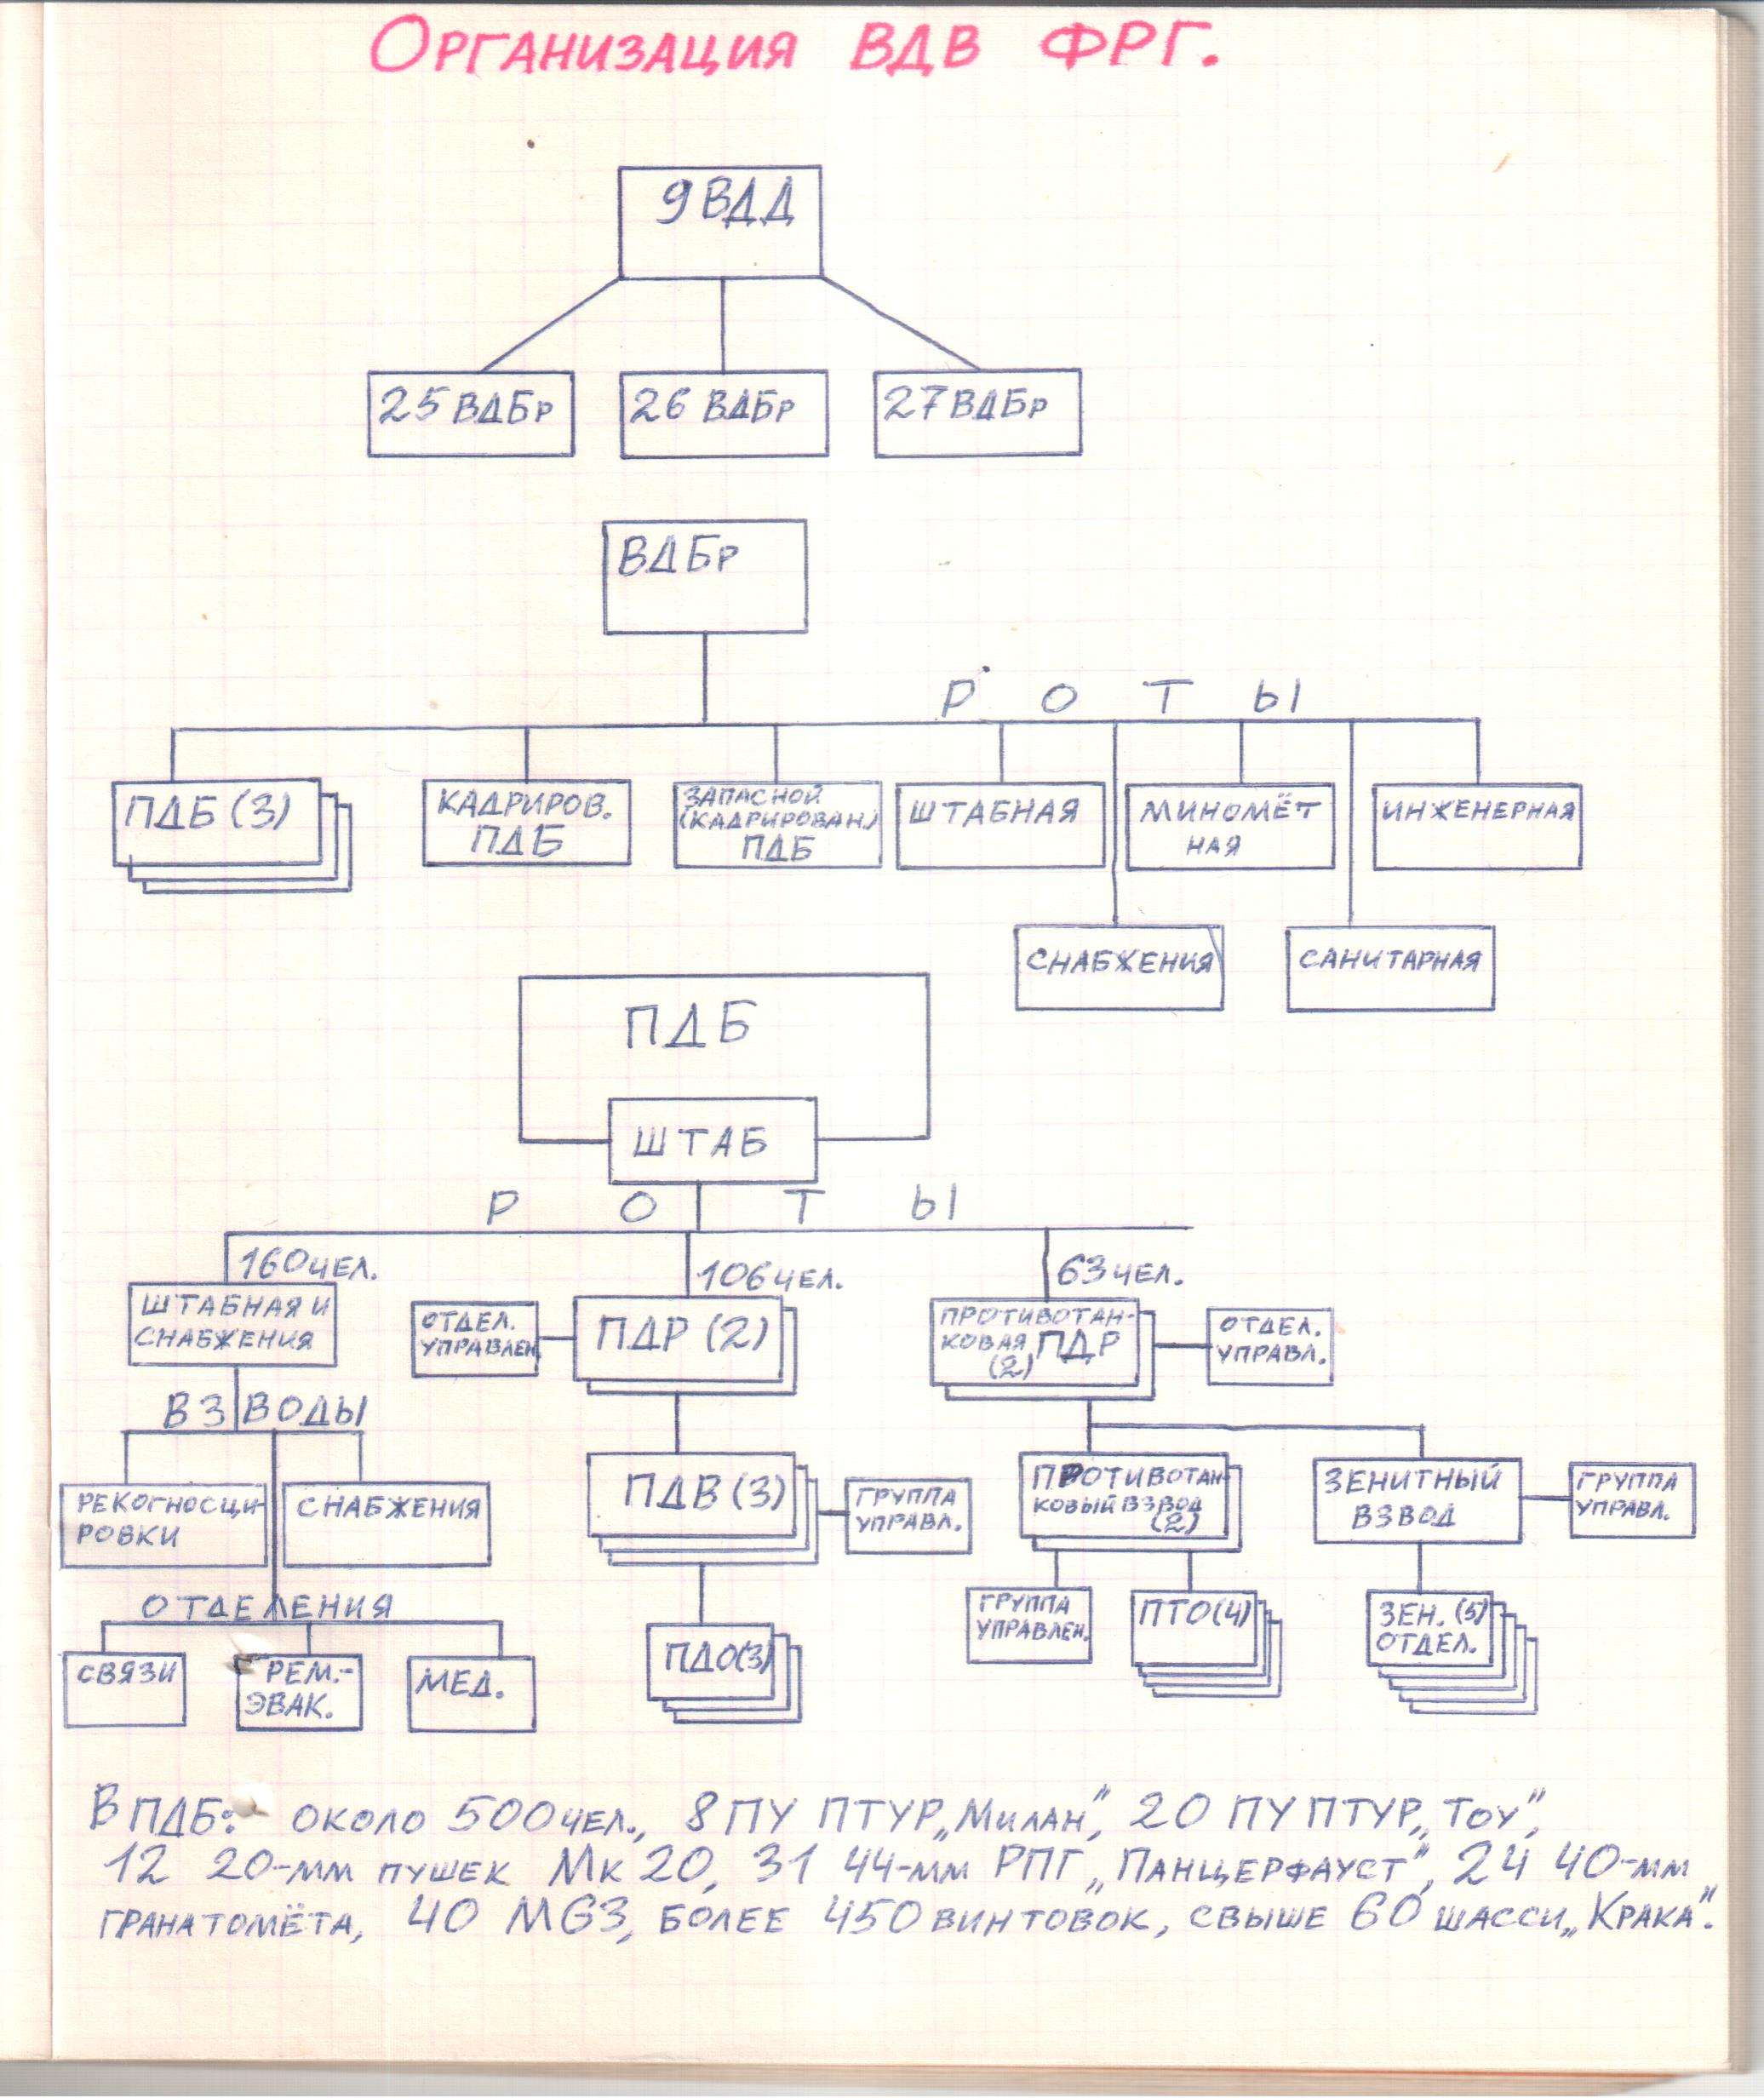 Организация ВДВ ФРГ.
9 ВДД
25 ВДБр 26 ВДБр 27 ВДБр
ВДБр
Р О Т Ы
ПДБ (3)
КАДРИРОВ.
ПДБ
ЗАПАСНОЙ
(КАДРИРОВАН.)
ПДБ
ШТАБНАЯ
МИНОМЁТ
НАЯ
ИНЖЕНЕРНАЯ
СНАБЖЕНИЯ
САНИТАРНАЯ
ПДБ
ШТАБ
Р О Т Ы
160 ЧЕЛ.
106 ЧЕЛ.
63 ЧЕЛ.
ШТАБНАЯ И
СНАБЖЕНИЯ
ОТДЕЛ.
УПРАВЛЕН.
ПДР (2)
ПРОТИВОТАН-
КОВАЯ ПДР
(2)
ОТДЕЛ.
УПРАВЛ.
ВЗВОДЫ
РЕКОГНОСЦИ-
РОВКИ
СНАБЖЕНИЯ
ПДВ (3)
ГРУППА
УПРАВЛ.
ПРОТИВОТАН-
КОВЫЙ ВЗВОД
(2)
ЗЕНИТНЫЙ
ВЗВОД
ГРУППА
УПРАВЛ.
ОТДЕЛЕНИЯ
СВЯЗИ
РЕМ.-
ЭВАК.
МЕД.
ПДО(3)
ГРУППА
УПРАВЛЕН.
ПТО(4)
ЗЕН. (5)
ОТДЕЛ.
В ПДБ: ОКОЛО 500 ЧЕЛ., 8 ПУ ПТУР „Милан", 20 ПУ ПТУР „Тоу",
12 20-мм ПУШЕК Мк 20, 31 44-мм РПГ „Панцерфауст", 24 40-мм
ГРАНАТОМЁТА, 40 MG3, БОЛЕЕ 450 ВИНТОВОК, СВЫШЕ 60 ШАССИ „Крака".